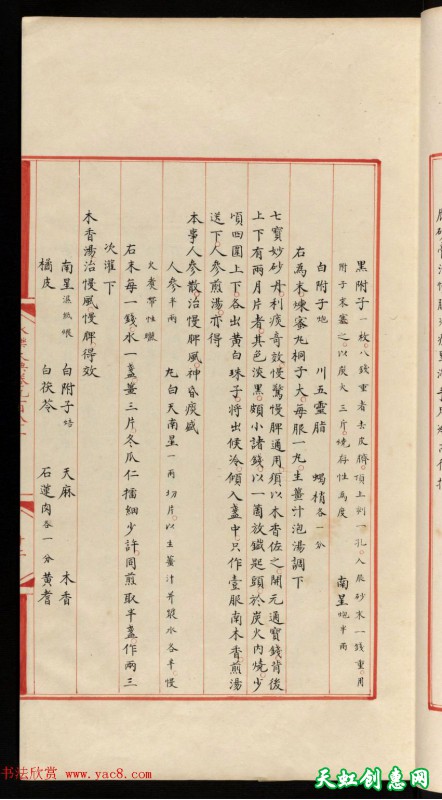 黑附子一枚。八錢重者去皮臍。頂上刺一孔。入辰砂末一錢重。用
附子末塞之。以炭火三斤。燒存性為度　南星炮半兩
白附子炮　川五靈脂　蝎梢各一分
右為末煉蜜丸桐子大。每服一丸。生薑汁泡湯調下
七寶妙砂丹利痰奇效慢驚慢脾通用。須以木香佐之。開元通寶錢背後
上下有兩月片者。其色淡黑。頗小諸錢。以一箇放鐵匙頭於炭火內燒。少
頃四圍上下。各出黄白珠子。將出候冷。傾入盞中。只作壹服。南木香煎湯
送下。人參煎湯亦得
本事人參散治慢脾風神昏痰盛
人參半兩　丸白天南星一兩切片。以生薑汁并漿水各半慢
火煮帶性曬
右末每一錢。水一盞薑三片。冬瓜仁擂細少許。同煎取半盞作兩三
次灌下
木香湯治慢風慢脾得效
南星濕紙煨　白附子焙　天麻　木香
橘皮　白茯苓　石蓮肉各一分　黄耆
书法欣赏 www.yac8.com
天虹创惠网